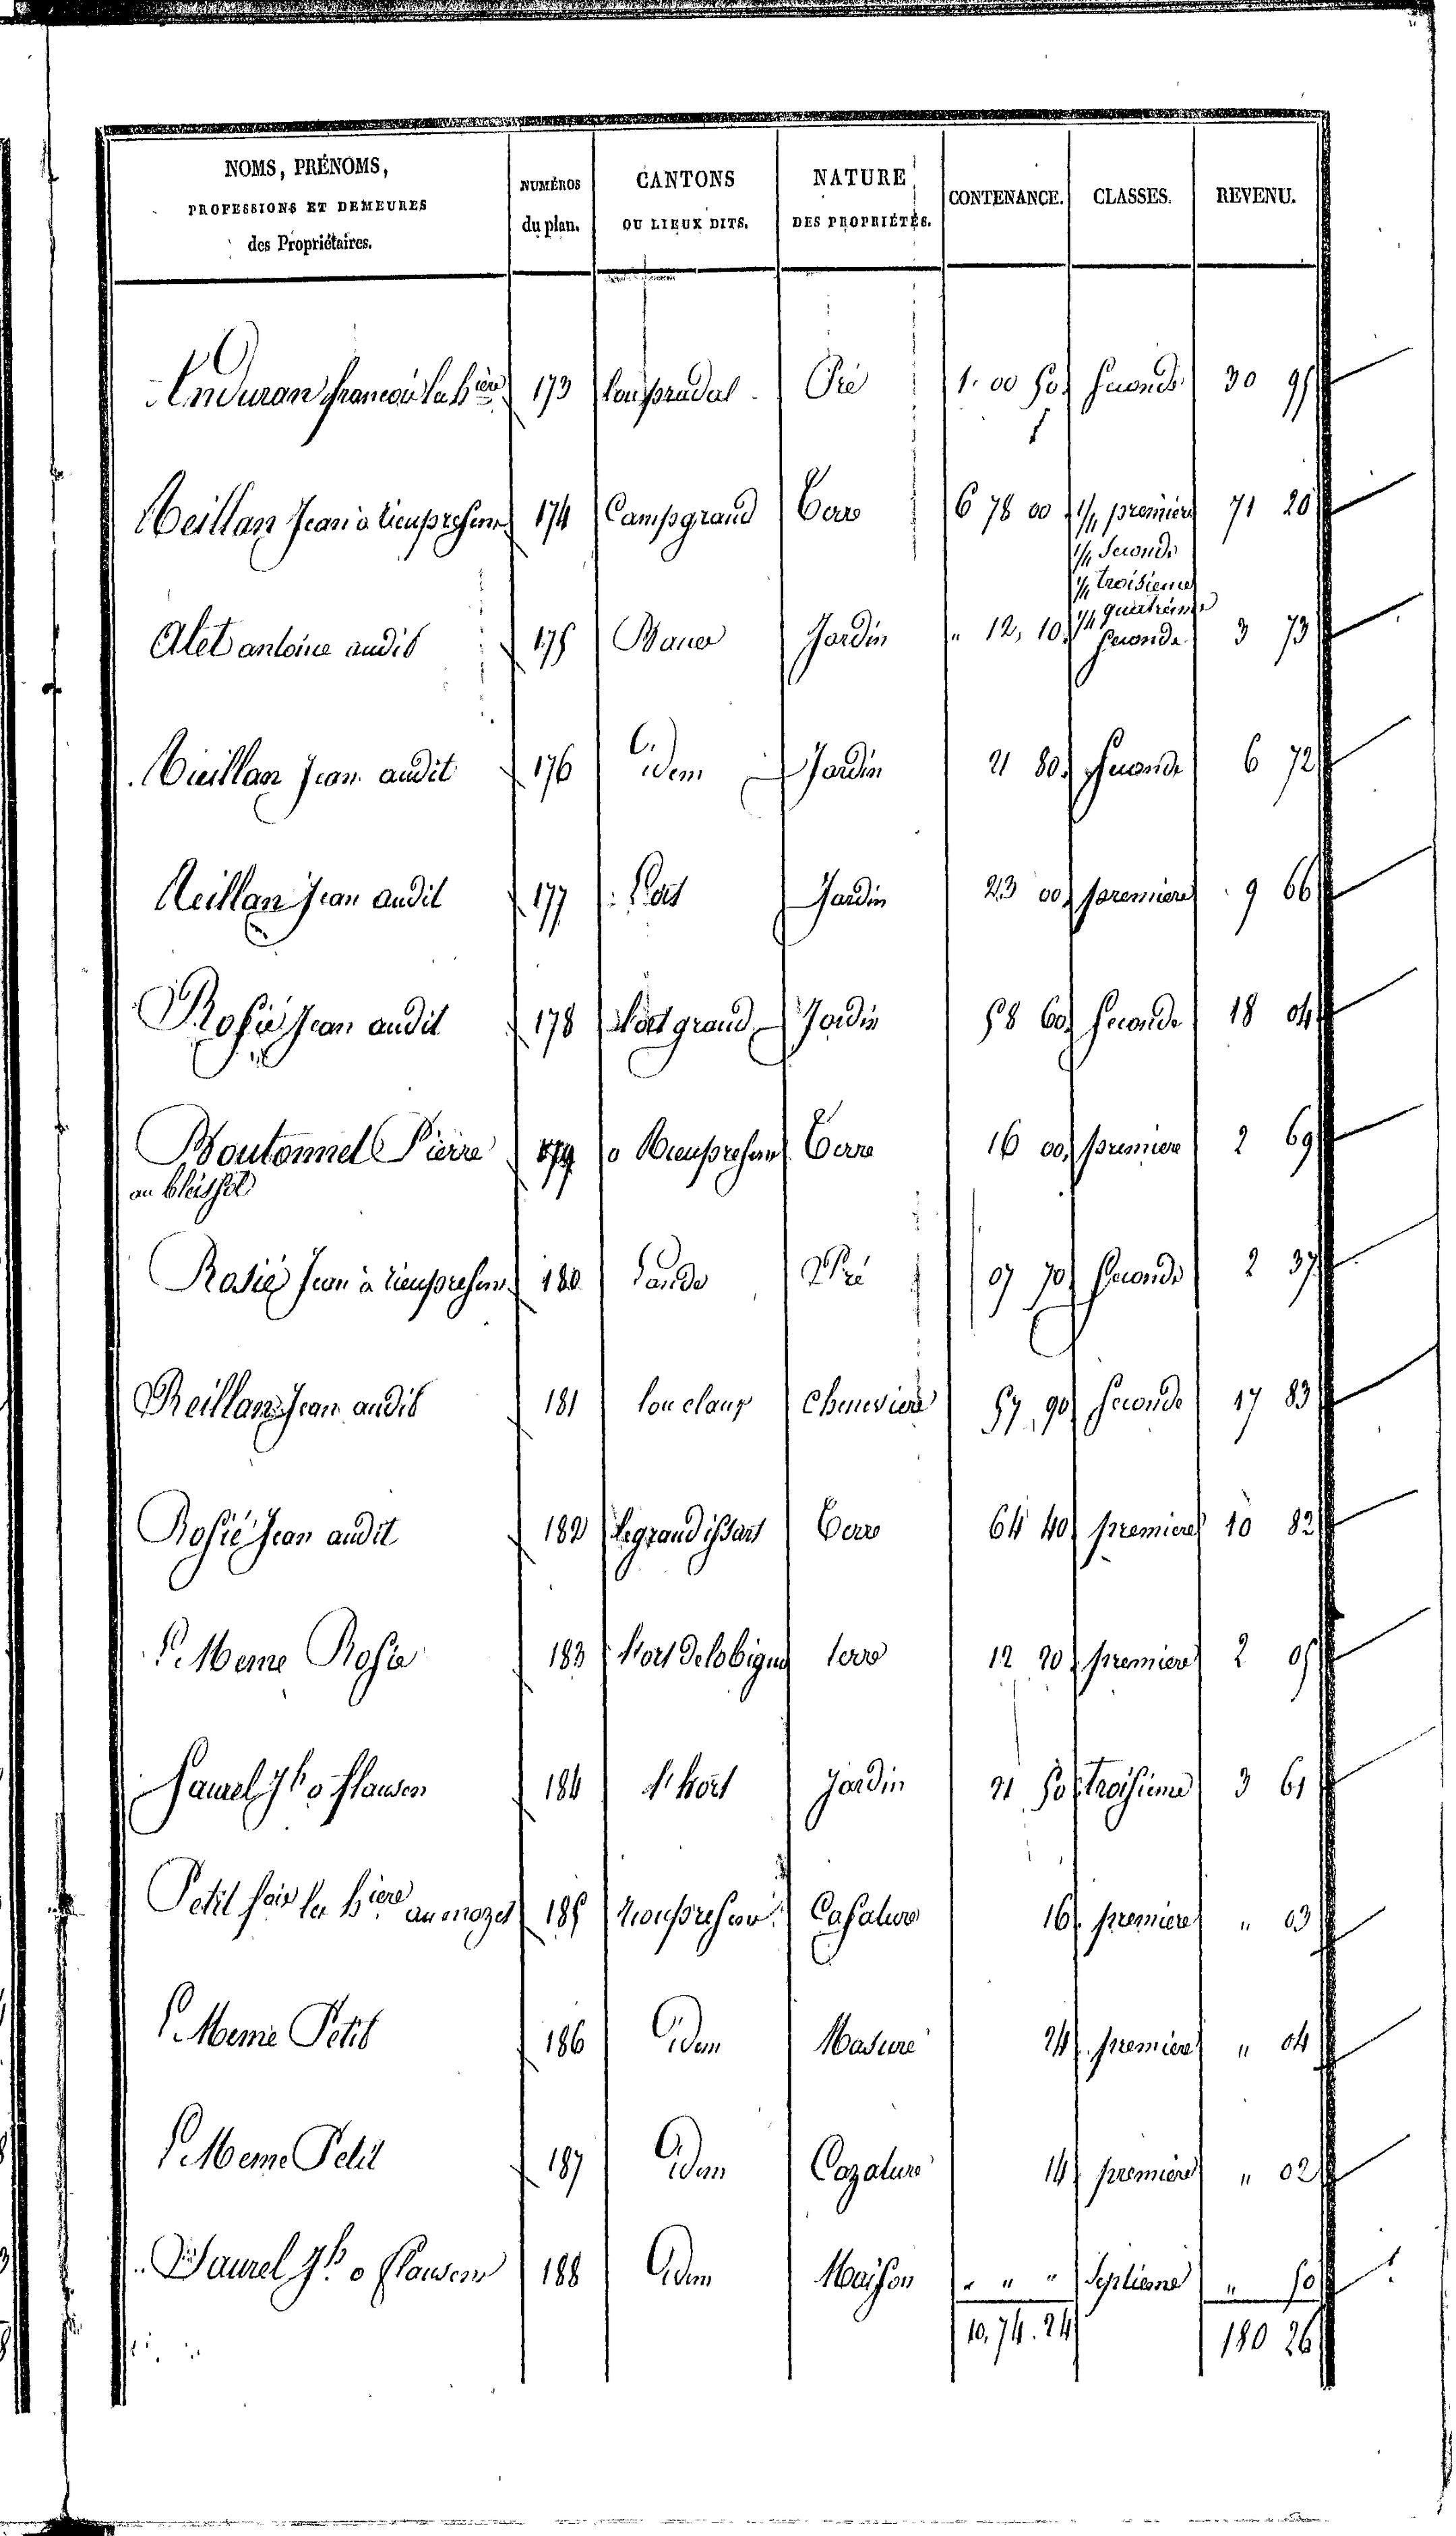 NOMS, PRÉNOMS,
PROFESSIONS ET DEMEURES
des Propriétaires.
NUMÉROS
du plan.
CANTONS
OU LIEUX DITS.
NATURE
DES PROPRIÉTÉS.
CONTENANCE.
CLASSES.
REVENU.
Anduran francois la hière 173 lou pradal Pré 1. 00 50 seconde 30 95
Meillan Jean à 174 Campgrand Terre 6 78 00 1/4 premiere 71 20
1/4 seconde
1/4 troisieme
1/4 quatrieme
Alet antoine audit 175 Jardin " 12, 10 seconde 3 73
Meillan Jean audit 176 idem Jardin 21 80 seconde 6 72
Meillan Jean audit 177 Jardin 23 00 premiere 9 66
Rosié Jean audit 178 lort grand Jardin 58 60 seconde 18 04
Boutonnet Pierre 179 Terre 16 00 premiere 2 69
au
Rosié Jean à 180 Pré 07 70 seconde 2 37
Reillan Jean audit 181 lou claux cheneviere 57, 90 seconde 17 83
Rosié Jean audit 182 le grand issart Terre 64 40 premiere 10 82
Meme Rosié 183 lort terre 12 20 premiere 2 05
Saurel Jh o flausen 184 l'hort Jardin 21 50 troisieme 3 61
Petit fois la hière au mazet 185 Casature 16 premiere " 03
Meme Petit 186 idem Masure 24 premiere " 04
Meme Petit 187 idem Cazature 14 premiere " 02
Saurel Jh o flausen 188 idem Maison " " " septieme " 50
10, 74. 24 180 26